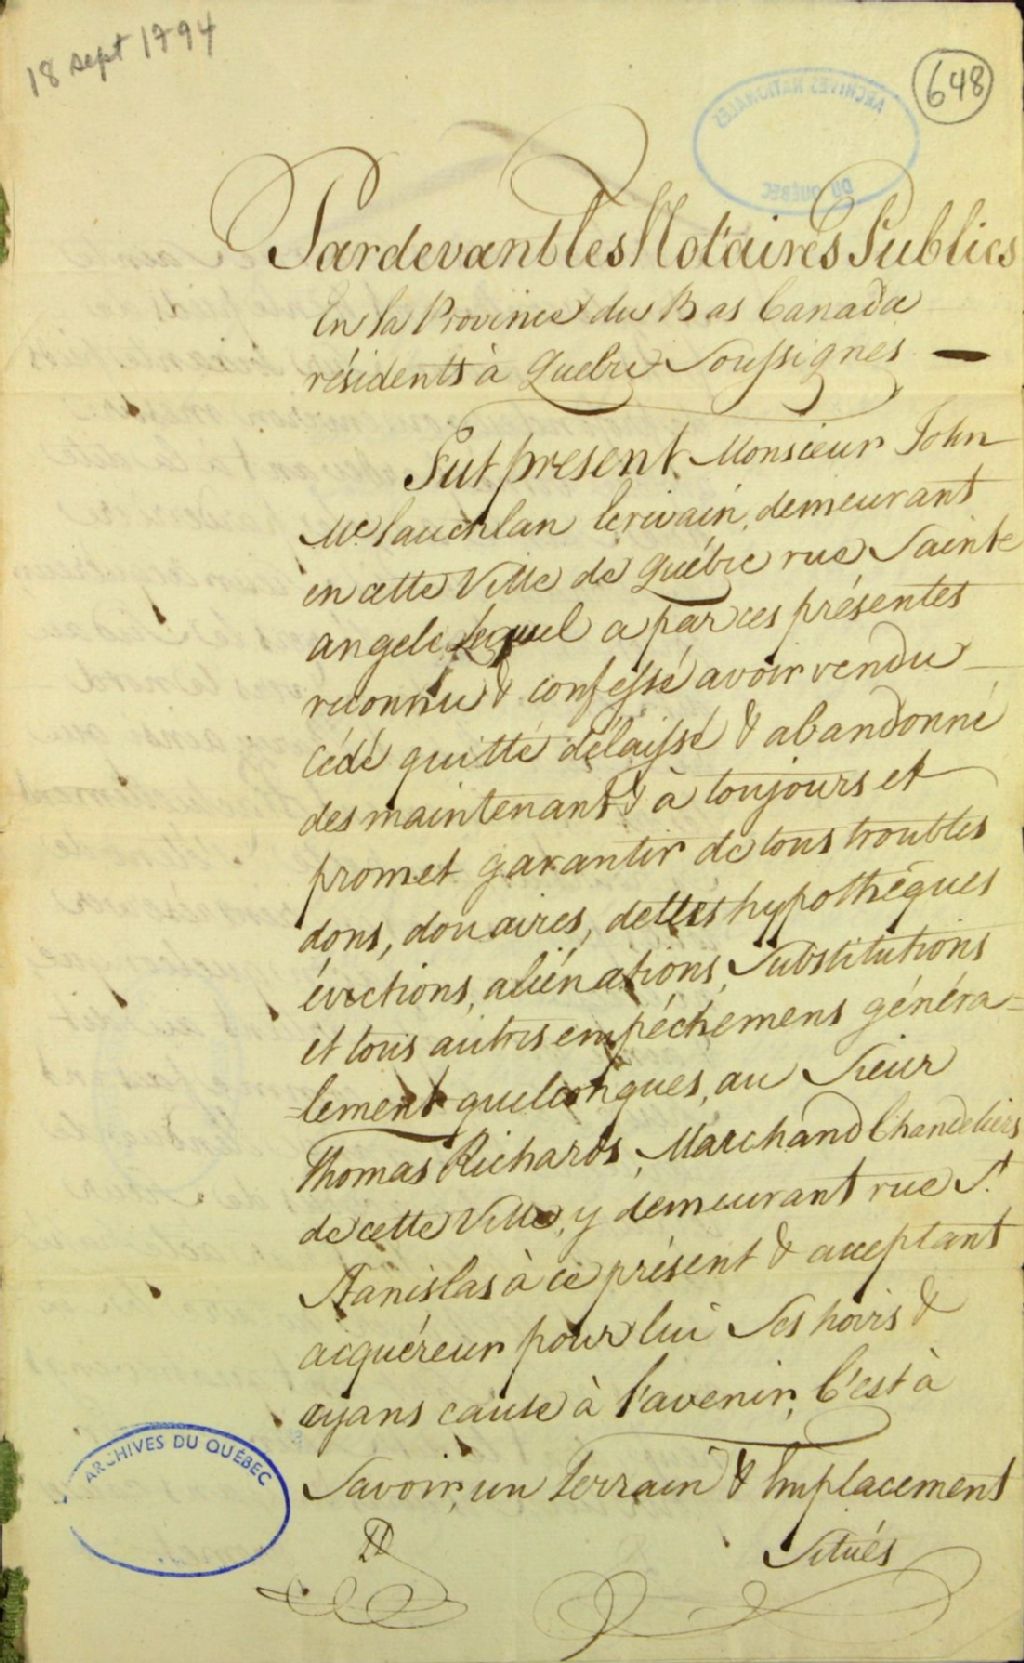 18 sept 1794
648
ARCHIVES NATIONALES
DU QUÉBEC
Pardevant les Notaires Publics
En la Province du Bas Canada
résidents à Quebec Soussignés —
Fut present Monsieur John
Mc lauchlan Ecrivain, demeurant
en cette Ville de Québec rue Sainte
angele lequel a par ces présentes
reconnu & confessé avoir vendu
cédé quitté délaissé & abandonné
des maintenant & à toujours et
promet garantir de tous troubles
dons, douaires, dettes hypothéques
évictions, aliénations, Substitutions
et tous autres empéchemens généra=
=lement quelconques, au Sieur
Thomas Richards, Marchand Chandeliers
de cette Ville, y demeurant rue St.
Stanislas à ce présent & acceptant
acquéreur pour lui Ses hoirs &
ayans cause à l'avenir, C'est à
Savoir, un Terrain & Emplacement
Situés
ARCHIVES DU QUÉBEC